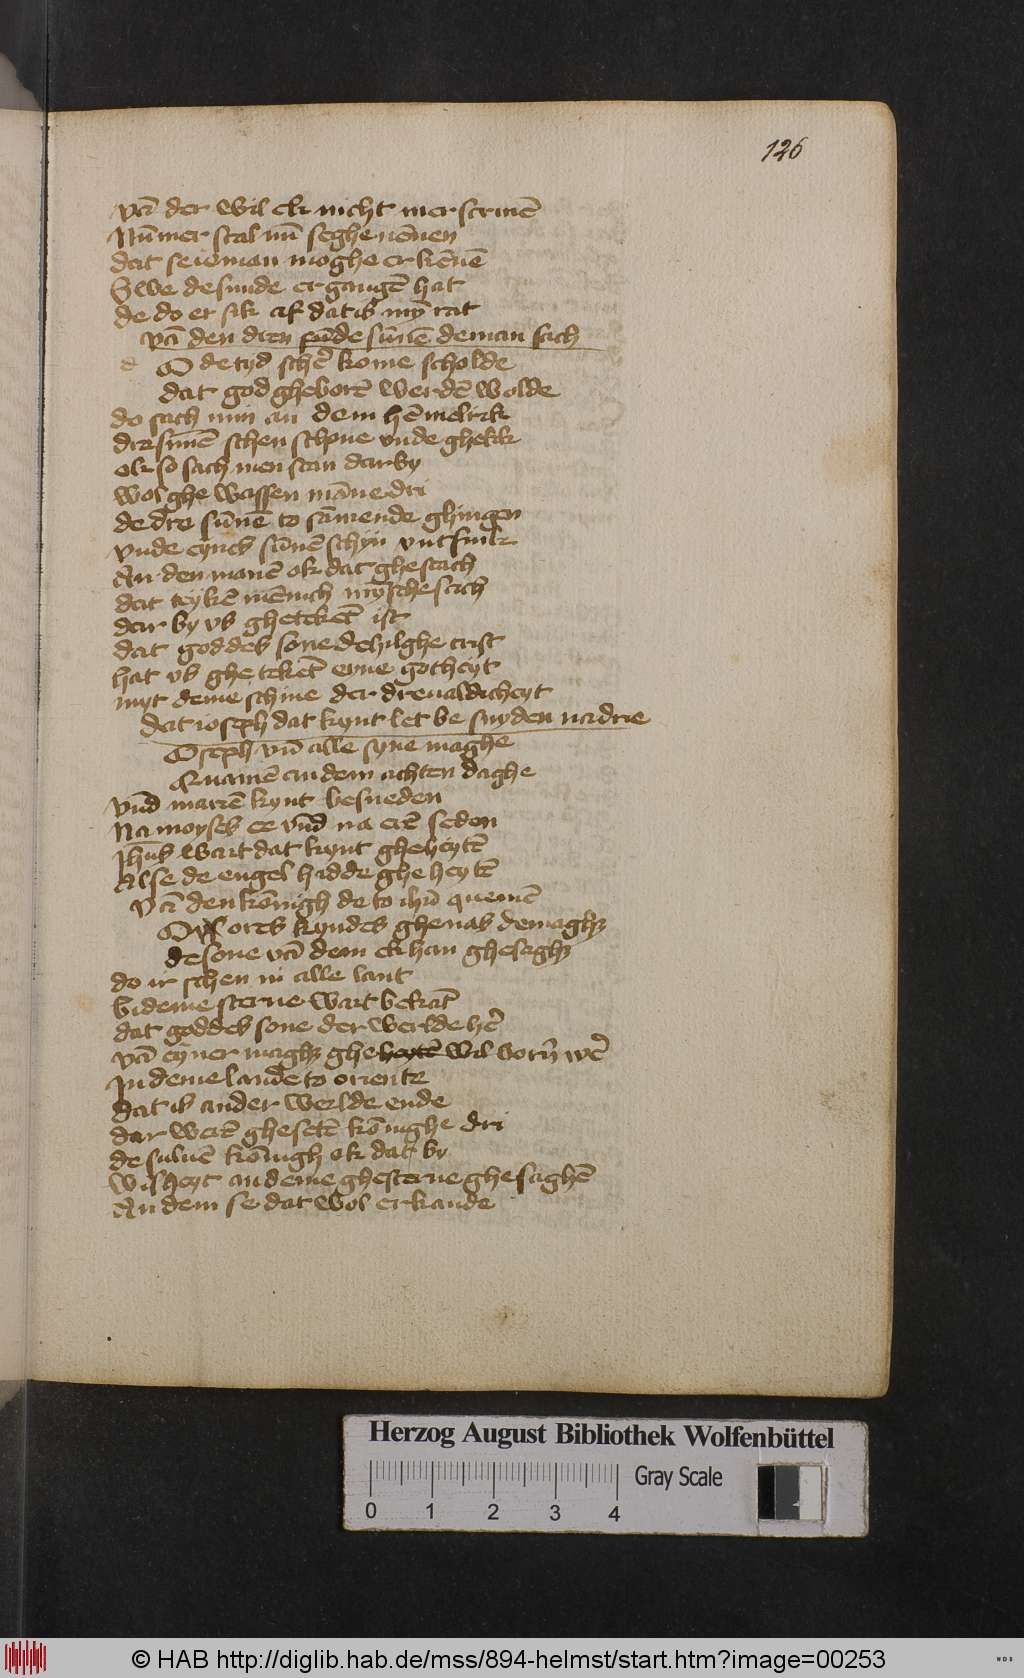 126
vā der wil ek nicht mer scriuē
Nūmer scal mī seghe nēnen
dat se ieman moghe erkēnē
Swe de sunde ergangē hat
de do et sik af dat is myn rat
vā den dren sūnē de man sach
d O de tyd schēr kome scholde
dat god gheborē werdē wolde
do sach min an dem hēmelrik
dre sunē schen schone vnde ghelik
ok so sach men stan dar by
wol ghe wassen māne dri
de dre sūnē to sāmende ghingen
vnde eynes sūnē schyn vntfink
An den manē ok dat ghescach
dat teykē mēnich mȳsche sach
dar by vs ghetekēt ist
dat goddes sone de hilghe crist
hat vs ghe tekēt eyne gotheyt
myt deme schine der dreualdicheyt
dat ioseph dat kynt let be snyden na drie
Oseph vn̄ alle syne maghe
Quamē an dem achten daghe
vn̄d mariē kynt besneden
Na moyses ee vn̄d na erē seden
Jhūs wart dat kynt gheheytē
Alse de engel hadde ghe heytē
vā den kōnigh de to ihū quemē
ores kyndes ghenas de magh
de sone vā dem ek han ghesegh
do ir schen in alle lant
bi deme sterne wart bekāt
dat goddes sone der werlde hēr
vā eyner magh ghe heytē wil born wēr
In deme lande to oriente
dat is ander werlde ende
dar werē ghesetē kōnighe dri
de suluē kōnigh ok dat by
wisheyt an deme ghesterne ghesaghē
An dem se dat wol erkande
Herzog August Bibliothek Wolfenbüttel
Gray Scale
0 1 2 3 4
© HAB http://diglib.hab.de/mss/894-helmst/start.htm?image=00253